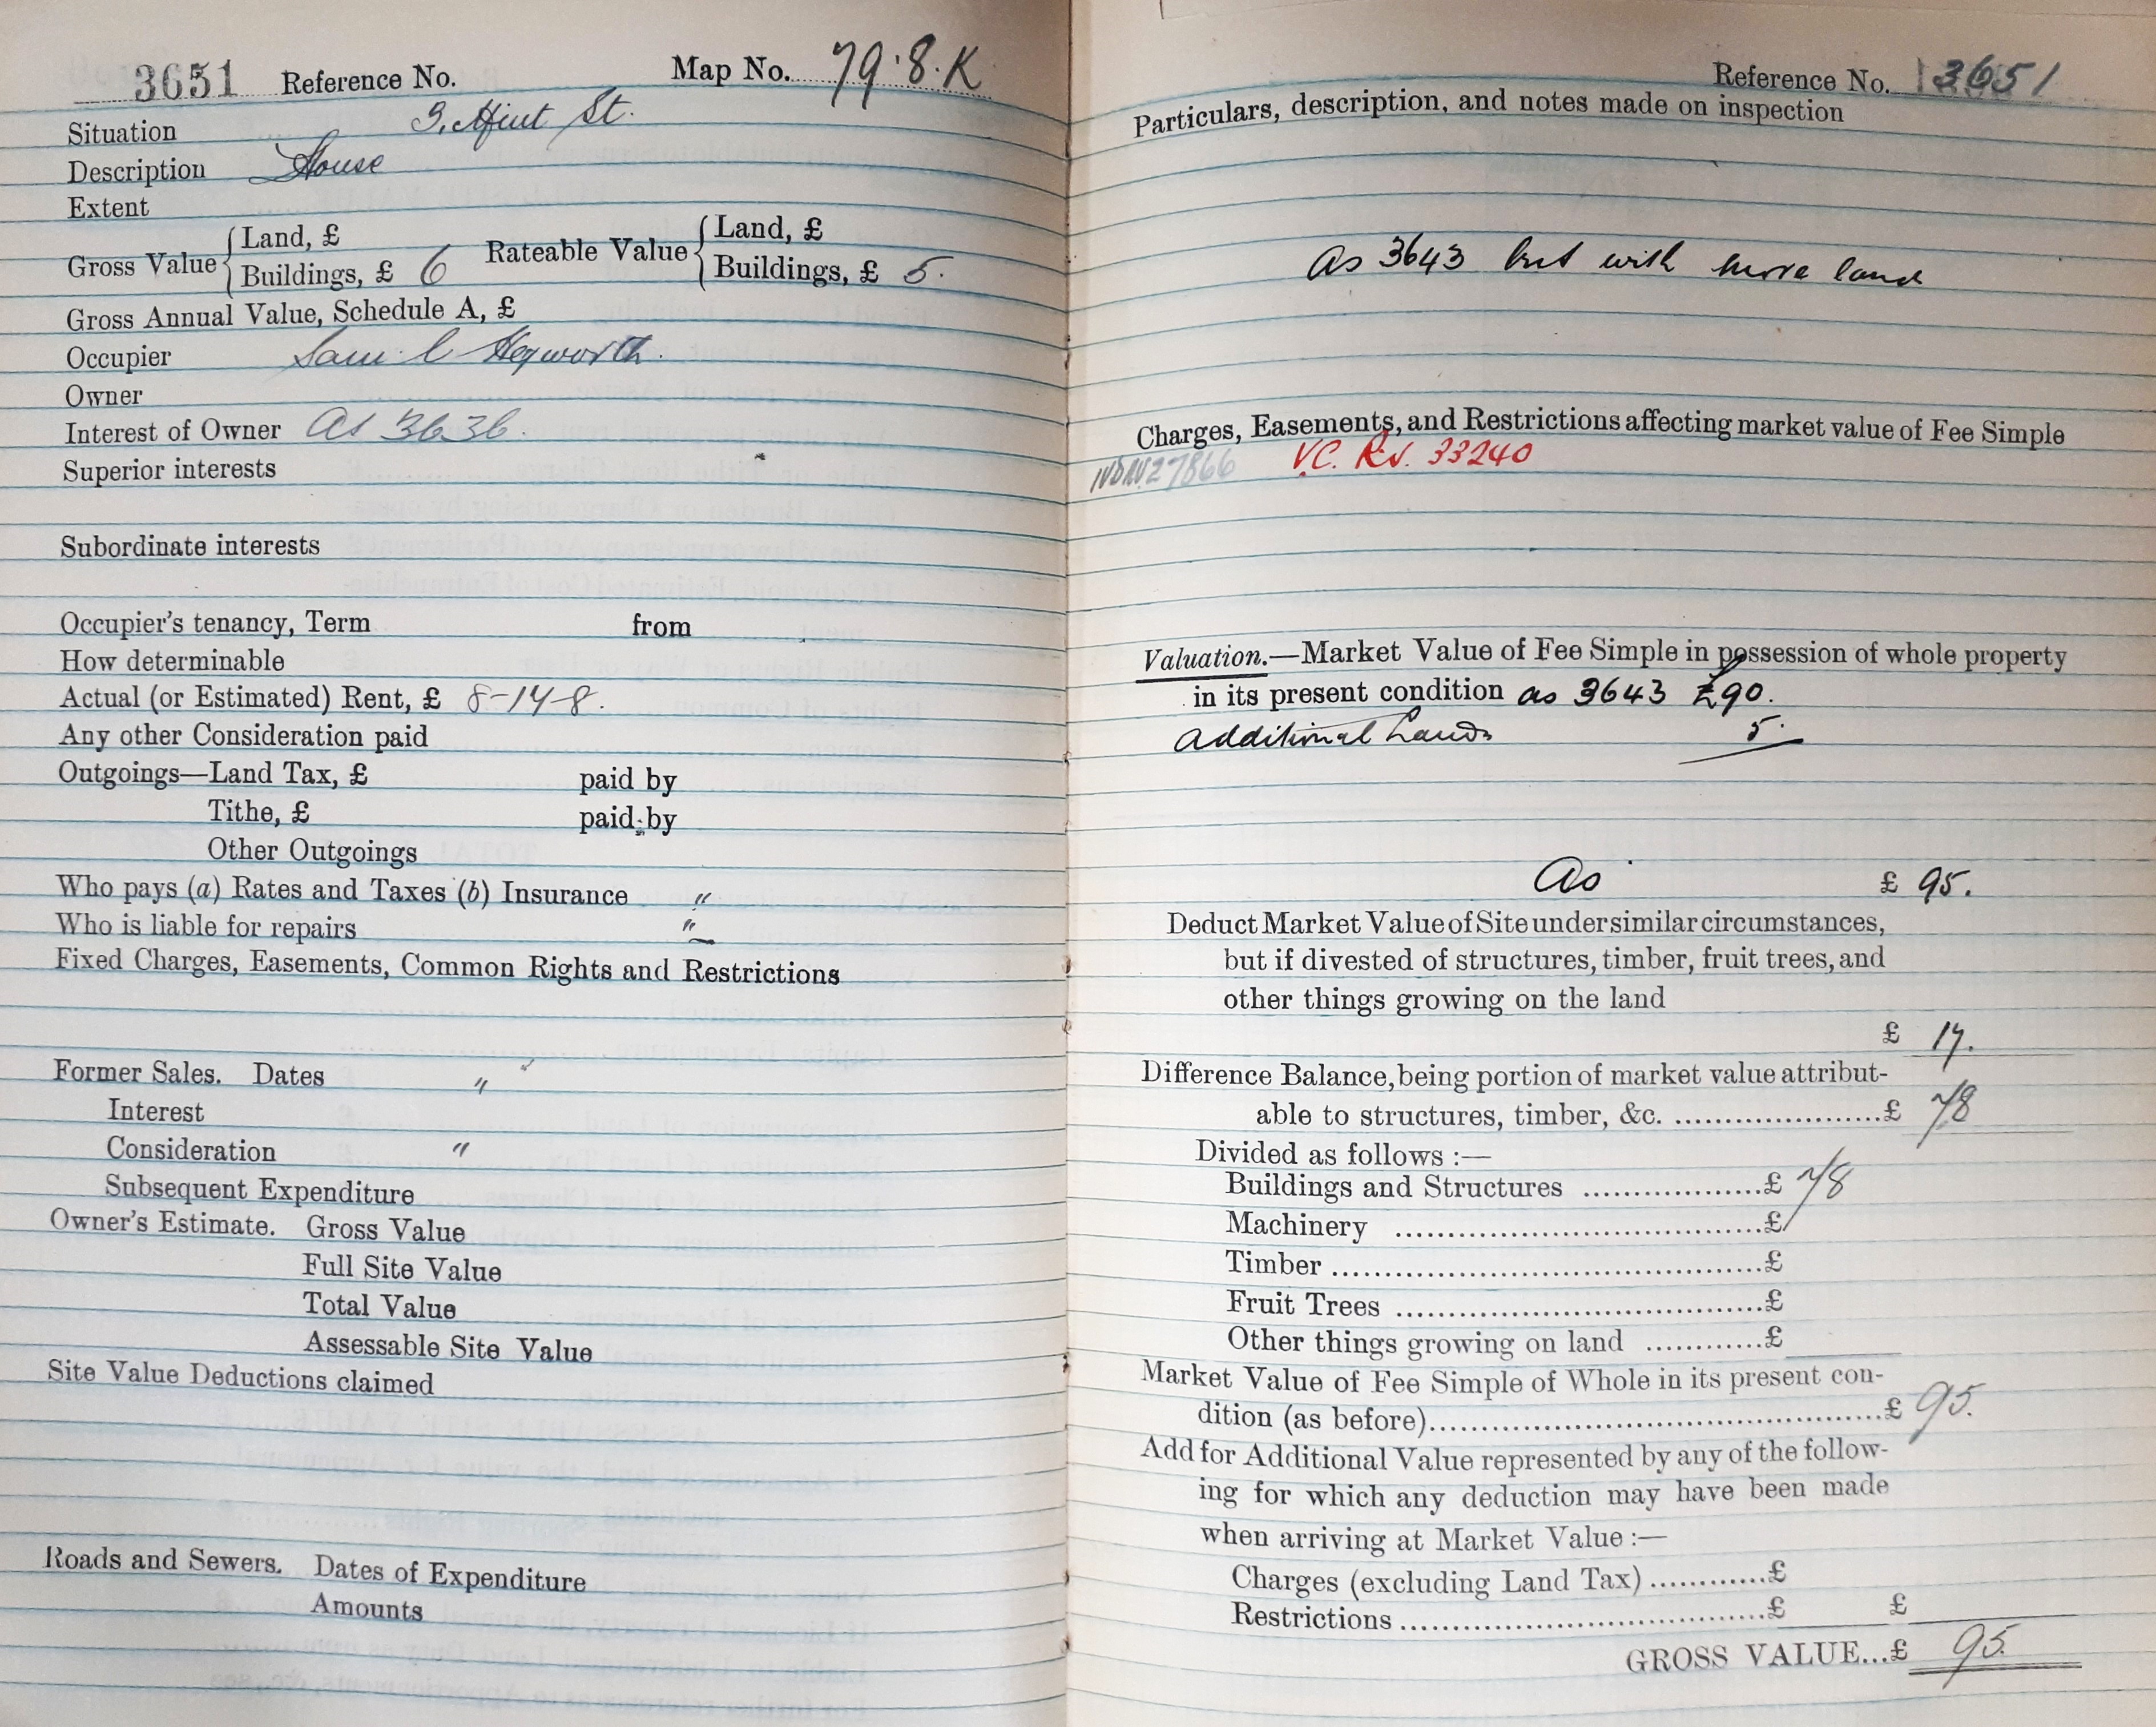 3651 Reference No. Map No. 79.8.K
Situation 3, St.
Description House
Extent
Gross Value { Land, £ Rateable Value { Land, £
Buildings, £ 6 Buildings, £ 5.
Gross Annual Value, Schedule A, £
Occupier Saml Hepworth.
Owner
Interest of Owner As 3636.
Superior interests
Subordinate interests
Occupier's tenancy, Term from
How determinable
Actual (or Estimated) Rent, £ 8-14-8.
Any other Consideration paid
Outgoings—Land Tax, £ paid by
Tithe, £ paid by
Other Outgoings
Who pays (a) Rates and Taxes (b) Insurance "
Who is liable for repairs "
Fixed Charges, Easements, Common Rights and Restrictions
Former Sales. Dates "
Interest
Consideration "
Subsequent Expenditure
Owner's Estimate. Gross Value
Full Site Value
Total Value
Assessable Site Value
Site Value Deductions claimed
Roads and Sewers. Dates of Expenditure
Amounts
Reference No. 3651
Particulars, description, and notes made on inspection
As 3643 but with more land
Charges, Easements, and Restrictions affecting market value of Fee Simple
27866 V.C. 33240
Valuation.—Market Value of Fee Simple in possession of whole property
in its present condition as 3643 £90.
Additional Land 5.
£ 95.
Deduct Market Value of Site under similar circumstances,
but if divested of structures, timber, fruit trees, and
other things growing on the land
£ 17.
Difference Balance, being portion of market value attribut-
able to structures, timber, &c. ....................£ 78
Divided as follows :—
Buildings and Structures .................£ 78
Machinery ...................................£
Timber .........................................£
Fruit Trees ...................................£
Other things growing on land ...........£
Market Value of Fee Simple of Whole in its present con-
dition (as before)..........................................£ 95.
Add for Additional Value represented by any of the follow-
ing for which any deduction may have been made
when arriving at Market Value :—
Charges (excluding Land Tax) ...........£
Restrictions ..................................£ £
GROSS VALUE...£ 95.